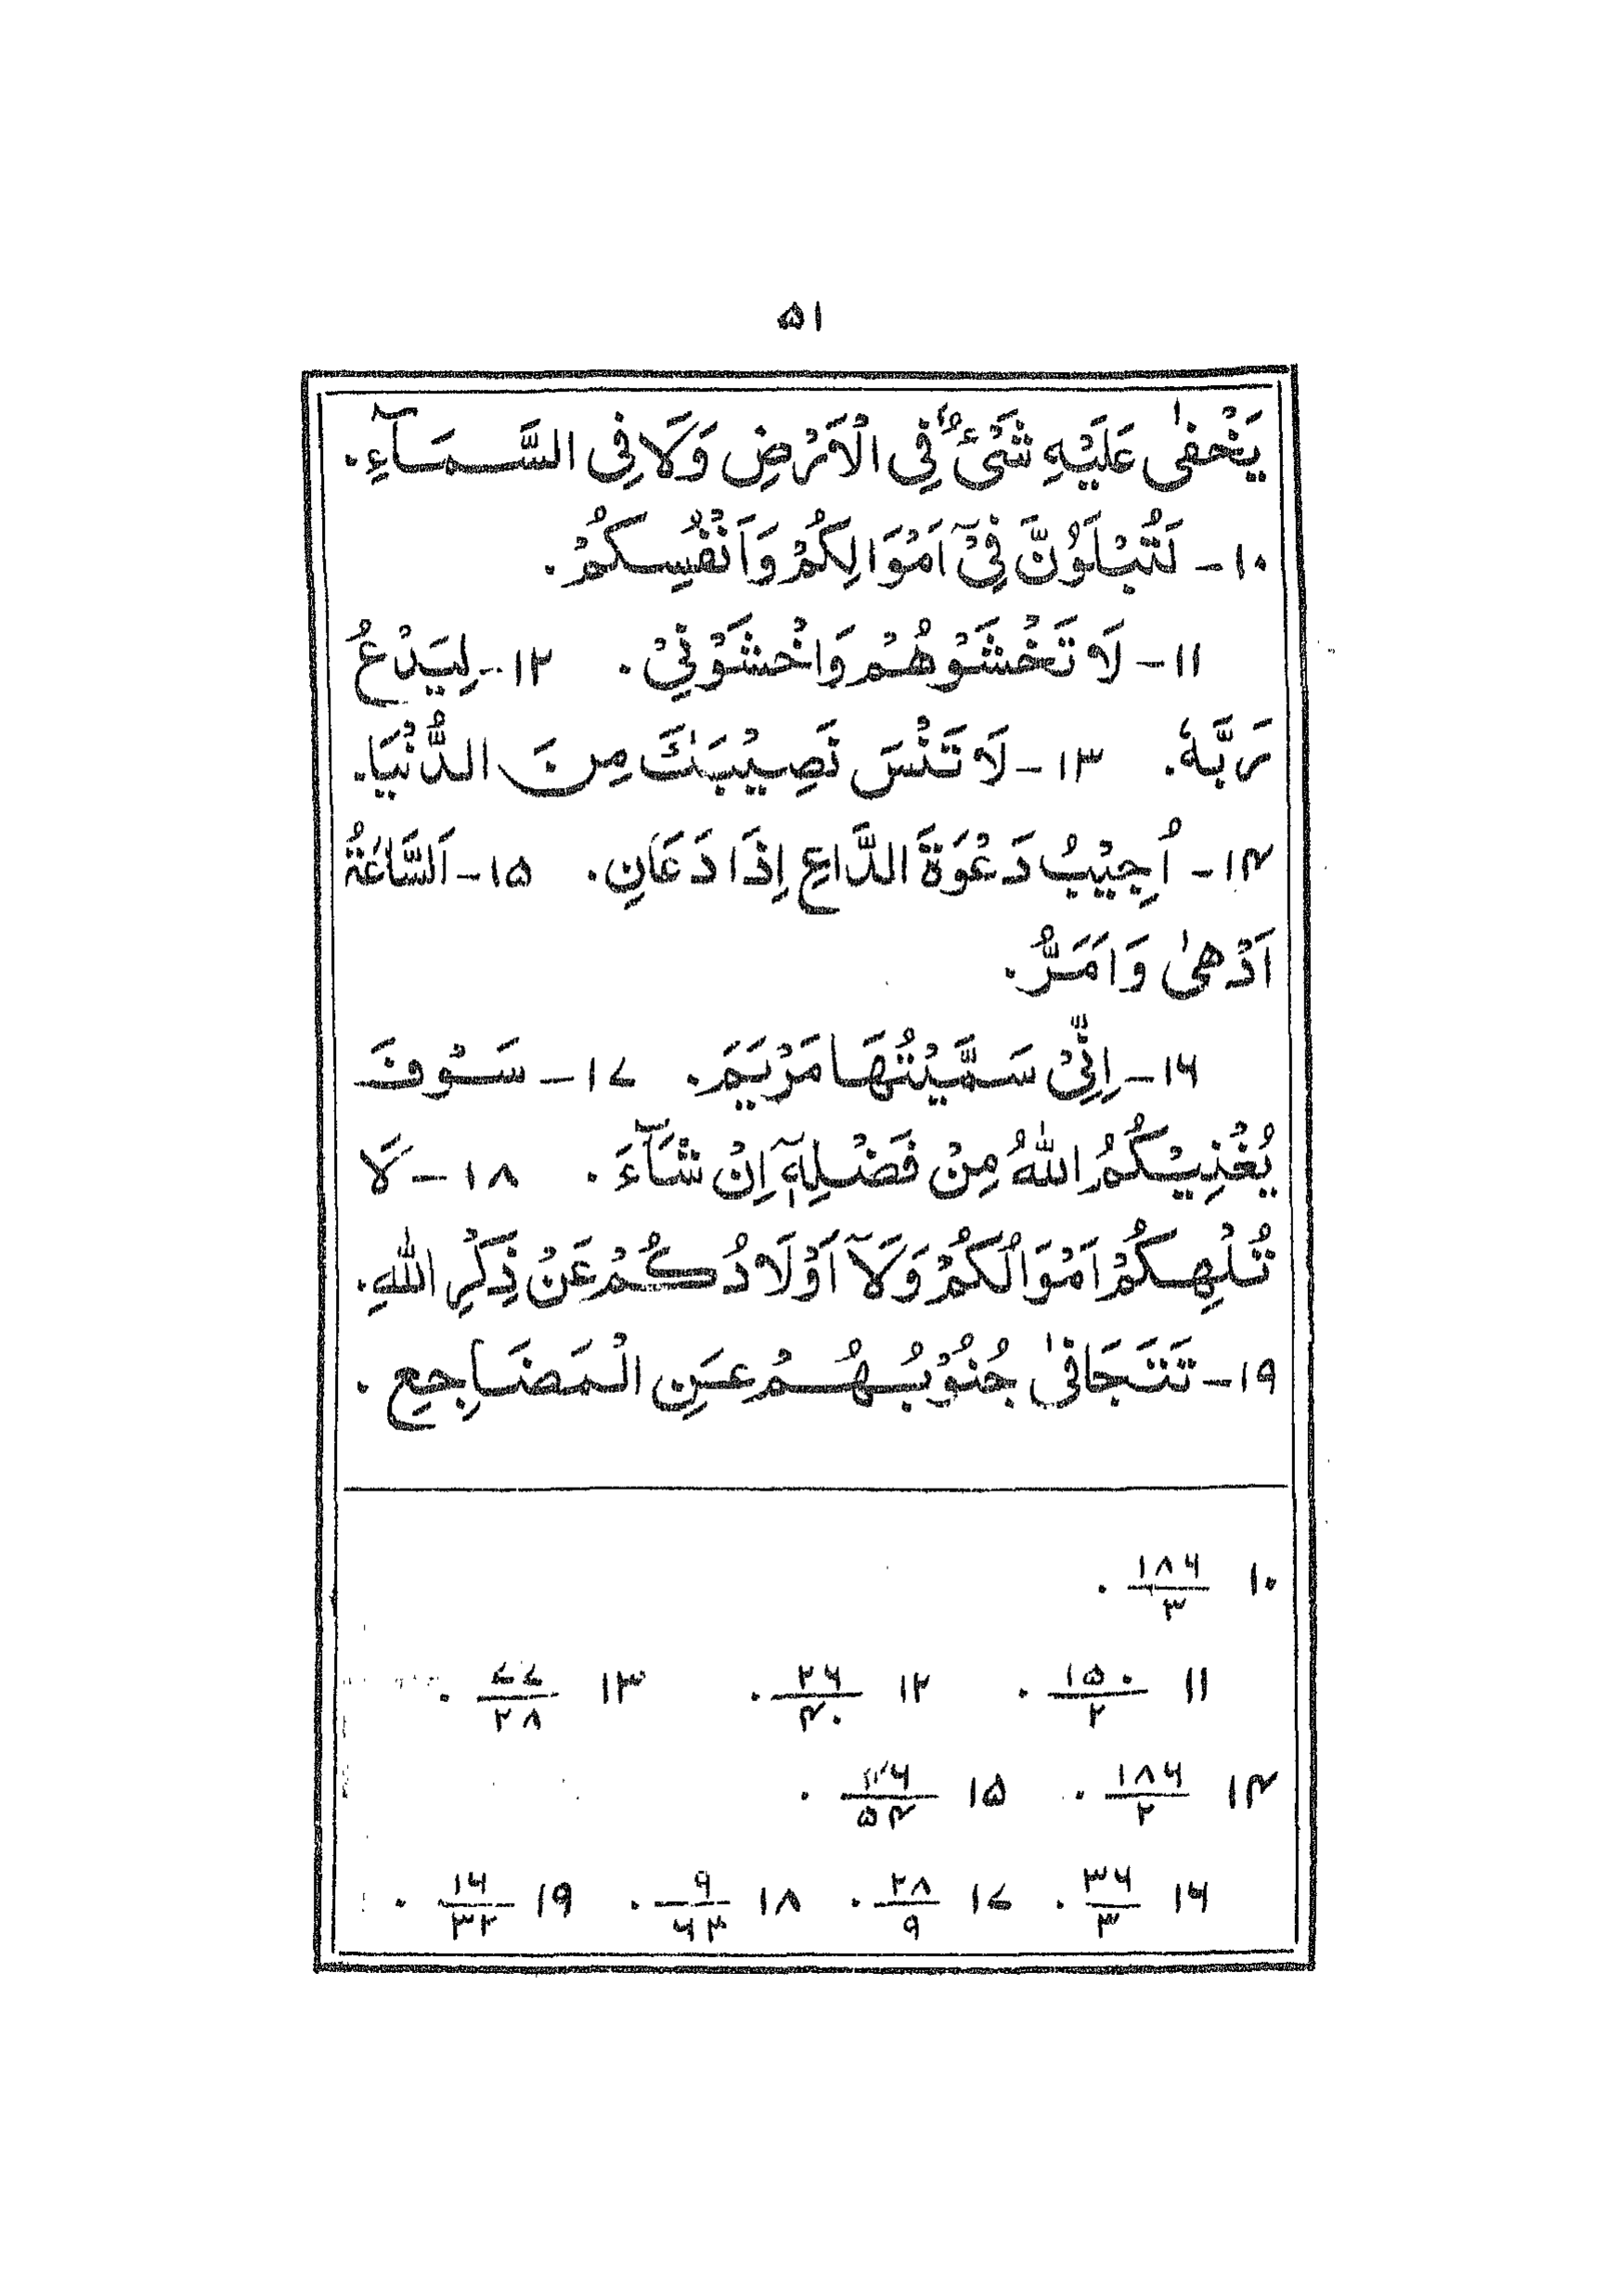 ۵۱
يَخْفٰى عَلَيْهِ شَىْءٌ فِى الْاَرْضِ وَلَا فِى السَّمَآءِ.
۱۰- لَتُبْلَوُنَّ فِىْٓ اَمْوَالِكُمْ وَاَنْفُسِكُمْ.
۱۱- لَا تَخْشَوْهُمْ وَاخْشَوْنِىْ. ۱۲- لِيَدْعُ
رَبَّهٗ. ۱۳- لَا تَنْسَ نَصِيْبَكَ مِنَ الدُّنْيَا.
۱۴- اُجِيْبُ دَعْوَةَ الدَّاعِ اِذَا دَعَانِ. ۱۵- اَلسَّاعَةُ
اَدْهٰى وَاَمَرُّ.
۱۶- اِنِّىْ سَمَّيْتُهَا مَرْيَمَ. ۱۷- سَوْفَ
يُغْنِيْكُمُ اللّٰهُ مِنْ فَضْلِهٖٓ اِنْ شَآءَ. ۱۸- لَا
تُلْهِكُمْ اَمْوَالُكُمْ وَلَآ اَوْلَادُكُمْ عَنْ ذِكْرِ اللّٰهِ.
۱۹- تَتَجَافٰى جُنُوْبُهُمْ عَنِ الْمَضَاجِعِ.
۱۰ ۱۸۶/۳.
۱۱ ۱۵۰/۲. ۱۲ ۲۶/۴۰. ۱۳ ۷۷/۲۸.
۱۴ ۱۸۶/۲. ۱۵ /۵۴.
۱۶ ۳۶/۳. ۱۷ ۲۸/۹. ۱۸ ۹/۶۳. ۱۹ ۱۶/۳۲.